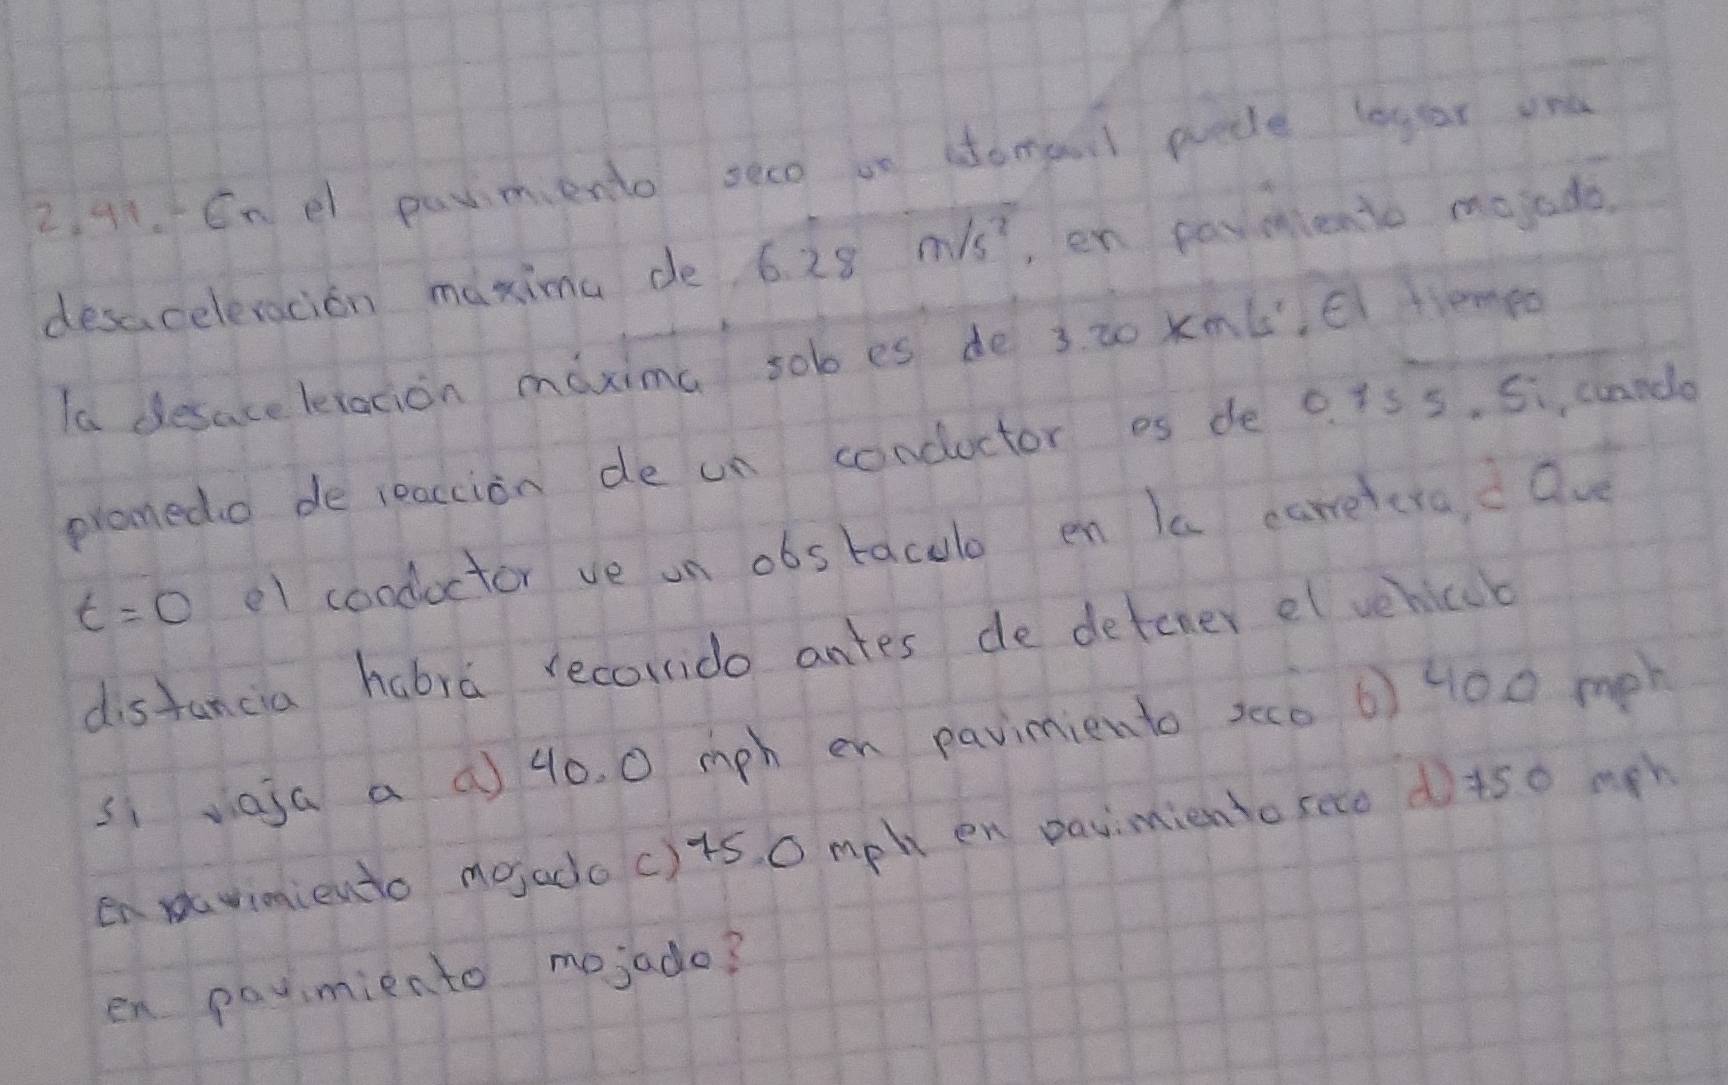 2.91.- En el pavimiento seco un automovil puede lograr una
desaceleración máxima de 6.28 m/s², en pavimiento mojado.
la desaceleración máxima solo es de 3.20 km/s². El tiempo
promedio de reacción de un conductor es de 0.75 s. Si, cuando
t=0 el conductor ve un obstaculo en la carretera, ¿Qué
distancia habrá recorrido antes de detener el vehiculo
si viaja a a) 40.0 mph en pavimiento seco b) 400 mph
en pavimiento mojado c) 75.0 mph en pavimiento seco d) 750 mph
en pavimiento mojado?